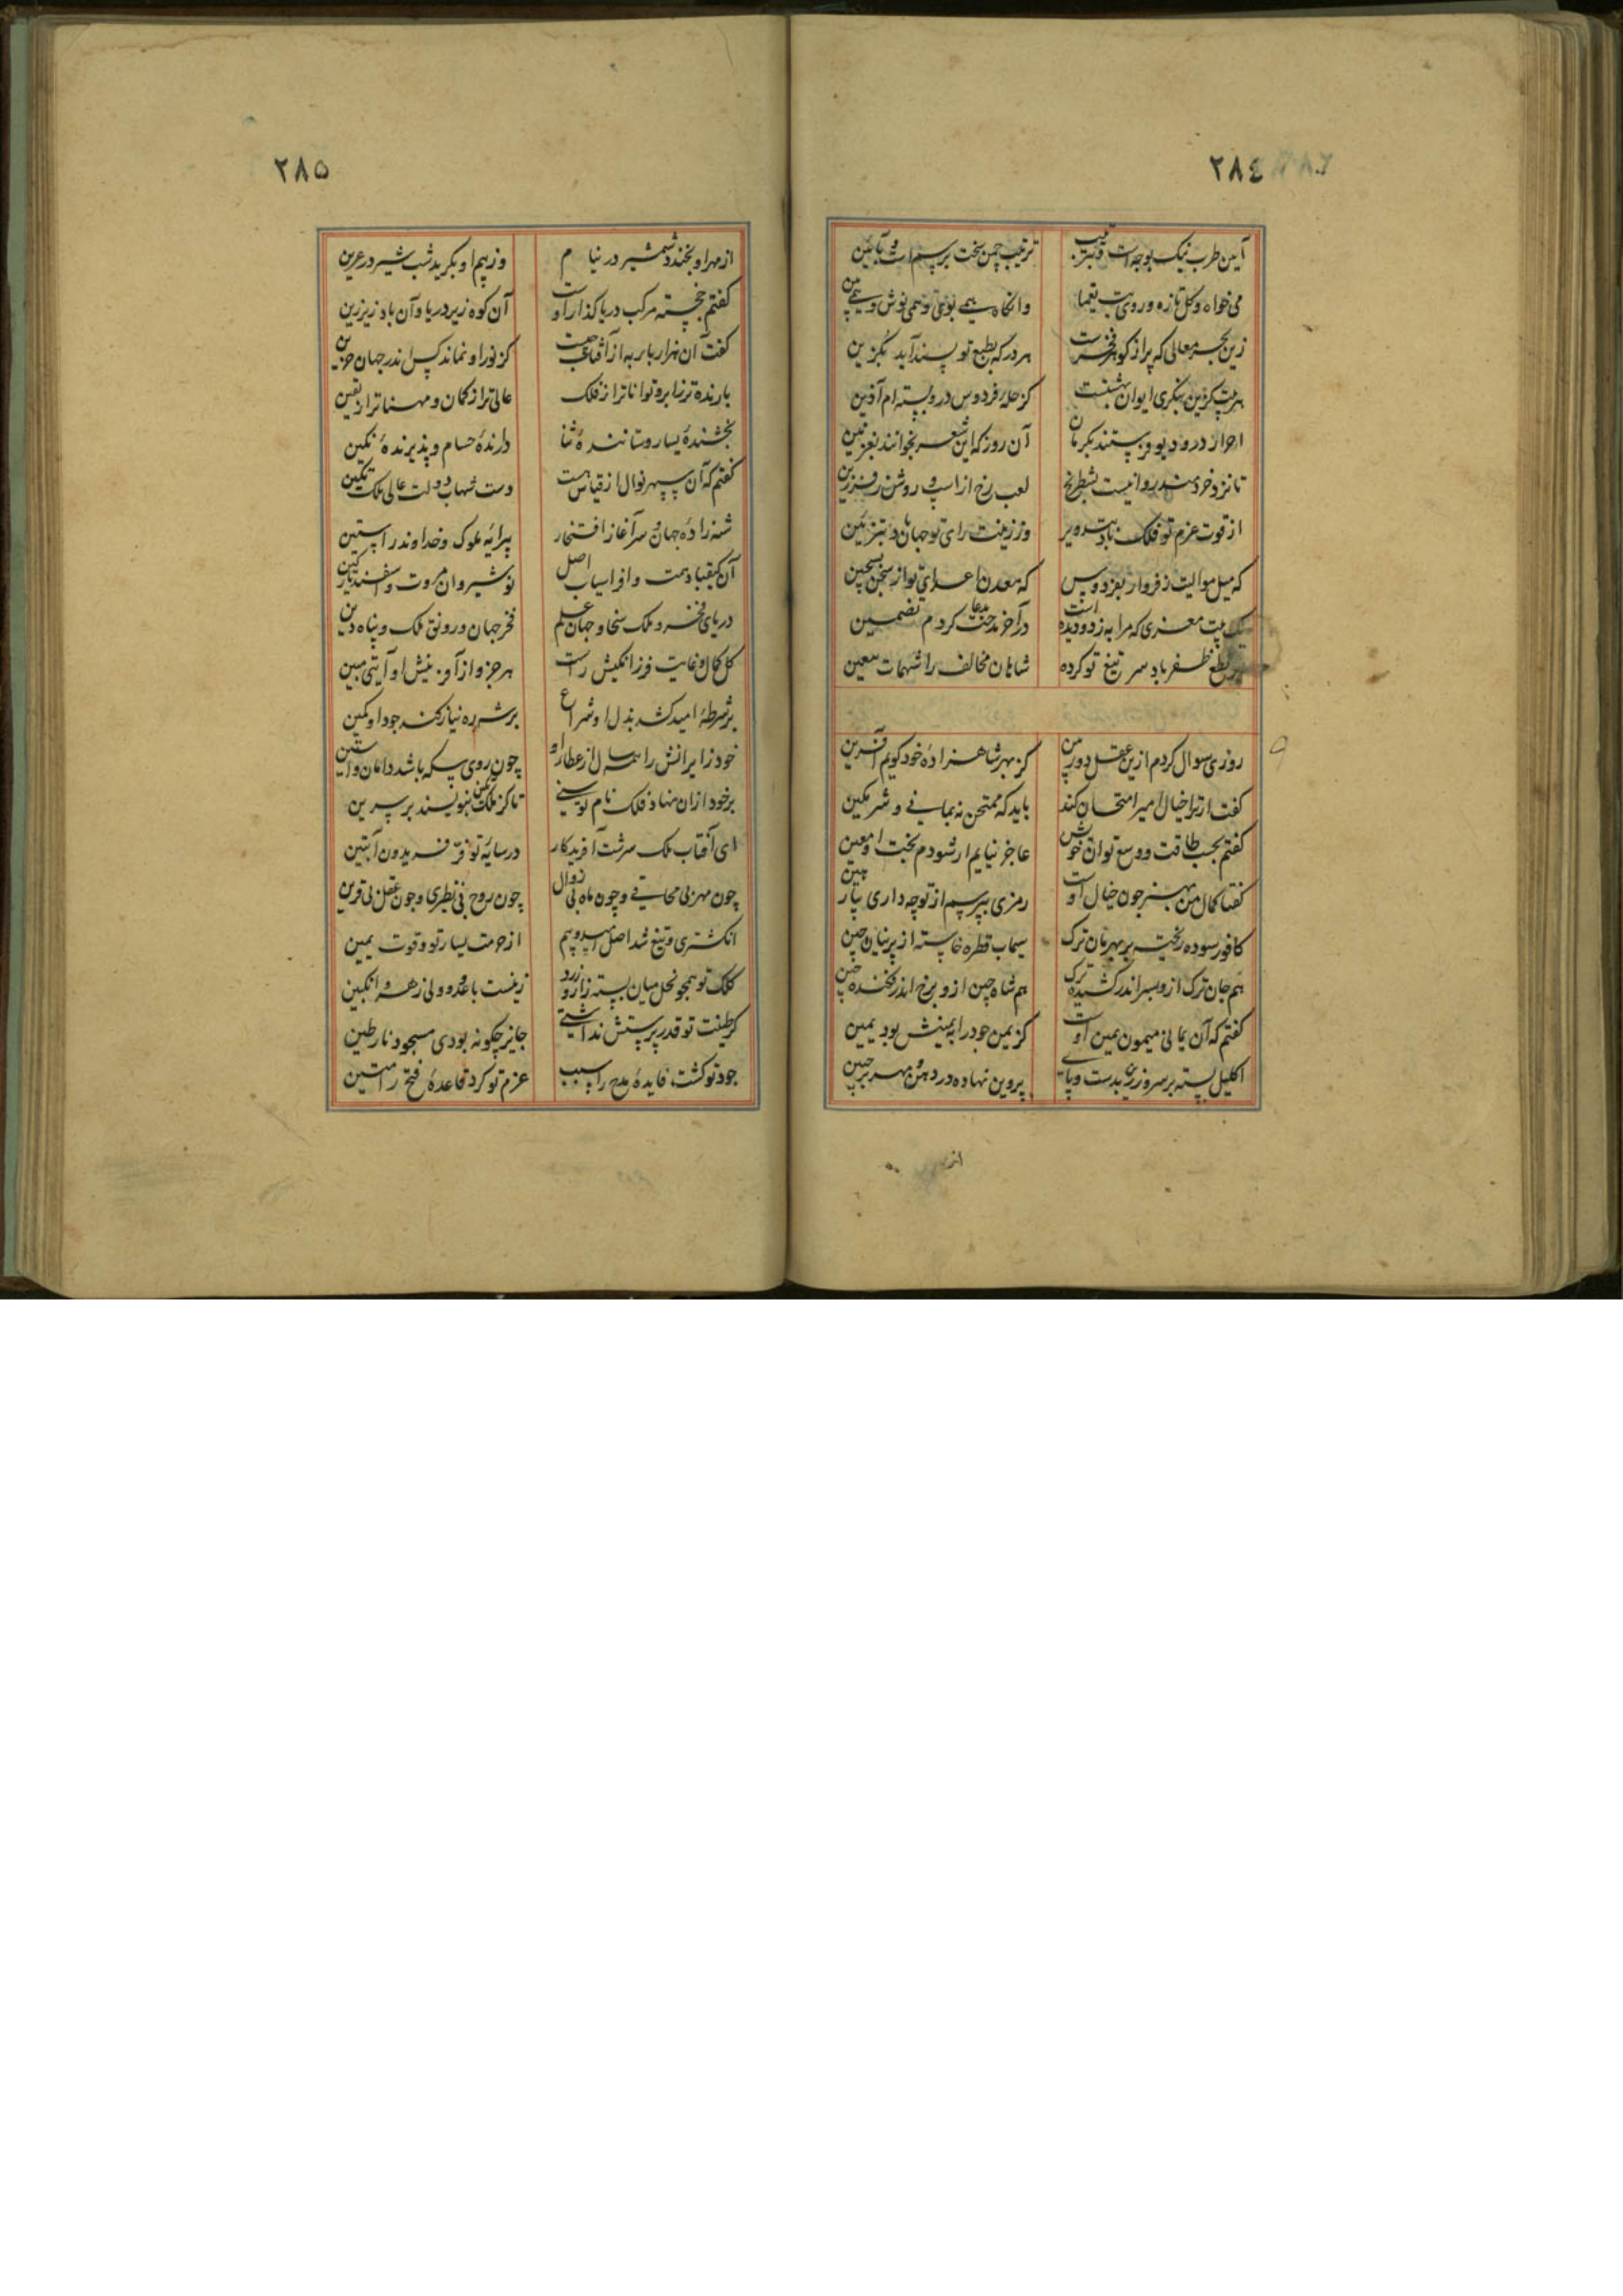 ۲۸۴
آیین طرب نیک بوجه است و بترتیب ترتیب چمن سخت برسم است و بآیین
می خواه و گل تازه و روی بت یغما وانگاه همی بوی و همی نوش و همی بین
زین بحر معالی که پر از گوهر فخرست هر در که بطبع تو پسند آید بگزین
هر بیت کزین بنگری ایوان بهشتست کز حله فردوس درو بسته ام آذین
احرار درود بو فرستند بکرمان آن روز که این شعر بخوانند بغزنین
تا نزد خردمند روا نیست بشطرنج لعب رخ از اسپ و روش فرزین
از قوت عزم تو فلک باد بتدویر وز زینت رای تو جهان باد بتزیین
که میل موالیت ز فرواز بفردوس که معدن اعدای تو از سجن بسجین
یک بیت معزی که مرا به ز دو دیده است در آخر مدحت بدعا کردم تضمین
بر نطع ظفر باد سر تیغ تو کرده شاهان مخالف را شهمات بتعیین
روزی سوال کردم ازین عقل دوربین کز بهر شاهزاده خود گویم آفرین
گفت ار ترا خیال امیر امتحان کند باید که ممتحن نه بمانی و شرمگین
گفتم بحسب طاقت و وسع توان خویش عاجز نیایم ار شودم بخت او معین
گفتا کمال من بهنر چون خیال اوست رمزی بپرسم از تو چه داری بیار هین
کافور سوده ریخته بر بهرمان ترک سیماب قطره خاسته از پرنیان چین
هم جان ترک ازو بسر اندر کشیده ترک هم شاه چین ازو برخ اندر فکنده چین
گفتم که آن یمانی میمون یمین اوست کز یمن جود رای یمینش بود یمین
اکلیل بسته بر سر و زرین بدست و پای پروین نهاده در دهن و مهر بر جبین
۲۸۵
از مهر او بخندد شمشیر در نیام وز بیم او بگرید شب شیر در عرین
گفتم خجسته مرکب دریا گذار اوست آن کوه زیر دریا وان باد زیر زین
گفت آن هزار بار به از آفتاب چیست کز نور او نماند کس اندر جهان حزین
بارنده تر ز ابر و تواناتر از فلک عالی تر از گمان و مهناتر از یقین
بخشنده یسار و ستاننده ثنا دارنده حسام و پذیرنده نگین
گفتم که آن سپهر نوال از قیاس هست دست شهاب دولت عالی ملک تکین
شهزاده جهان و سرآغاز افتخار پیرایه ملوک و خداوند راستین
آن کیقباد همت و افراسیاب اصل نوشیروان مروت و اسفندیار کین
دریای فخر و ملک سخا و جهان علم فخر جهان و رونق ملک و پناه دین
کل کمال و غایت فرزانگیش راست هر جزو از آفرینش او آیتی مبین
بر شرطه امید کشد بذل او شراع بر شیر ره نیاز کند جود او کمین
خود زایرانش را همه سال از عطار او چون روی سکه باشد دامان و آستین
برخور ازان نهاد فلک نام تو سنی تا کز ملک تکین بنویسند بر سرین
ای آفتاب ملک سرشت آفریدگار در سایه تو فر فریدون آبتین
چون مهر بی محاقی و چون ماه بی زوال چون روح بی نظیری و چون عقل بی قرین
انگشتری و تیغ شد اصل امید و بیم از حرمت یسار تو و قوت یمین
کلک تو همچو نحل میان بسته زار و زرد زینست با عدو و ولی زهر و انگبین
گر طینت تو قدر پرستش نداشتی جایز چگونه بودی مسجود نار طین
جود تو گشت فایده مدح را سبب عزم تو کرد قاعده فتح را متین